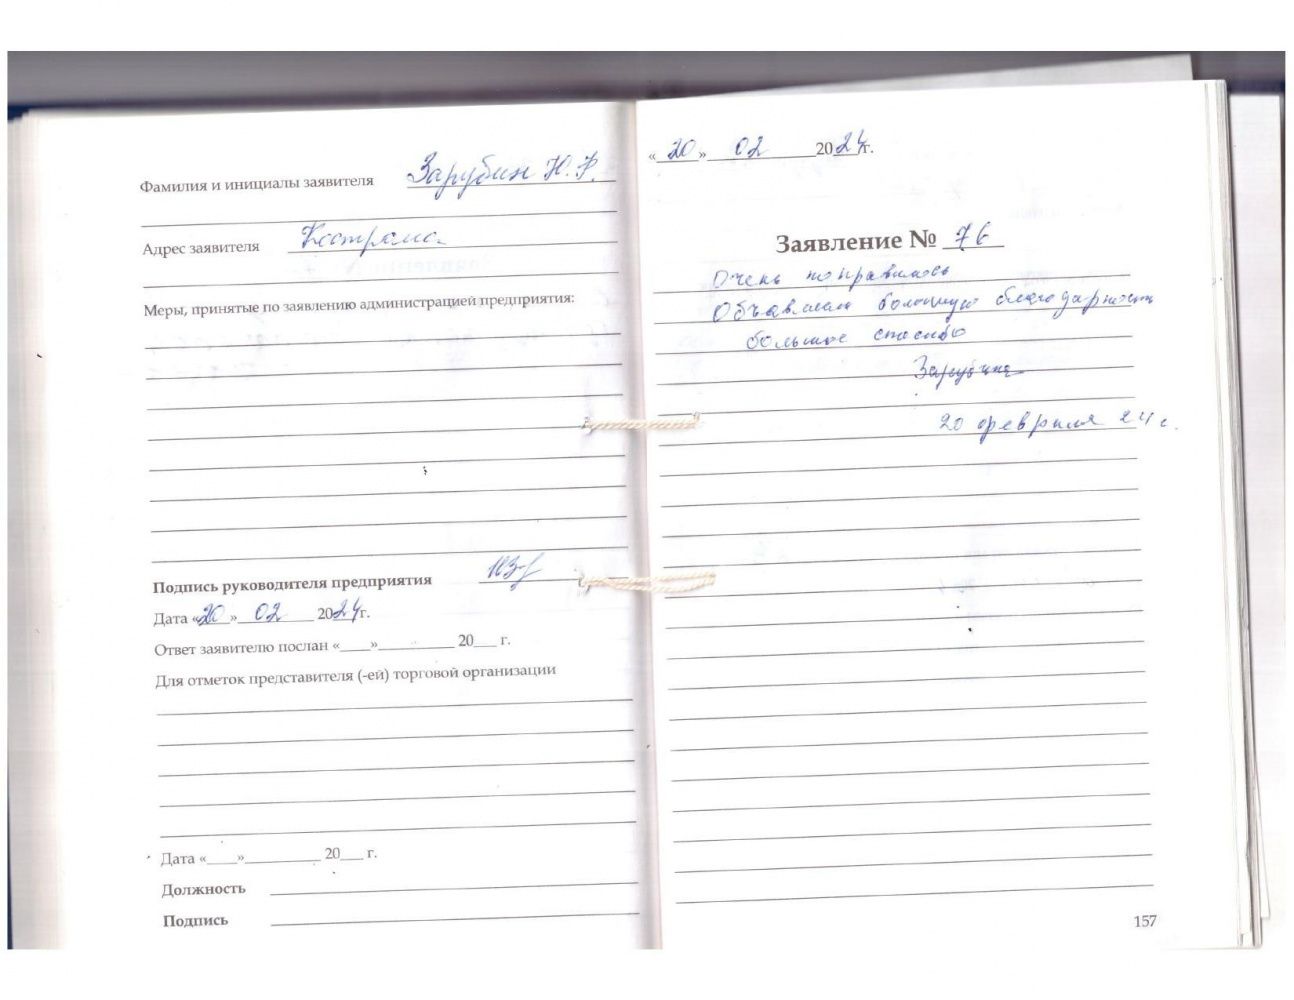 Фамилия и инициалы заявителя Зарубин Н.Р.
Адрес заявителя Кострома
Меры, принятые по заявлению администрацией предприятия:
Подпись руководителя предприятия
Дата «20» 02 2024г.
Ответ заявителю послан «___»__________ 20___ г.
Для отметок представителя (-ей) торговой организации
Дата «____»__________ 20___ г.
Должность
Подпись
«20» 02 2024г.
Заявление № 76
Очень понравилось
Объявляем большую благодарность
большое спасибо
Зарубина
20 февраля 24 г.
157